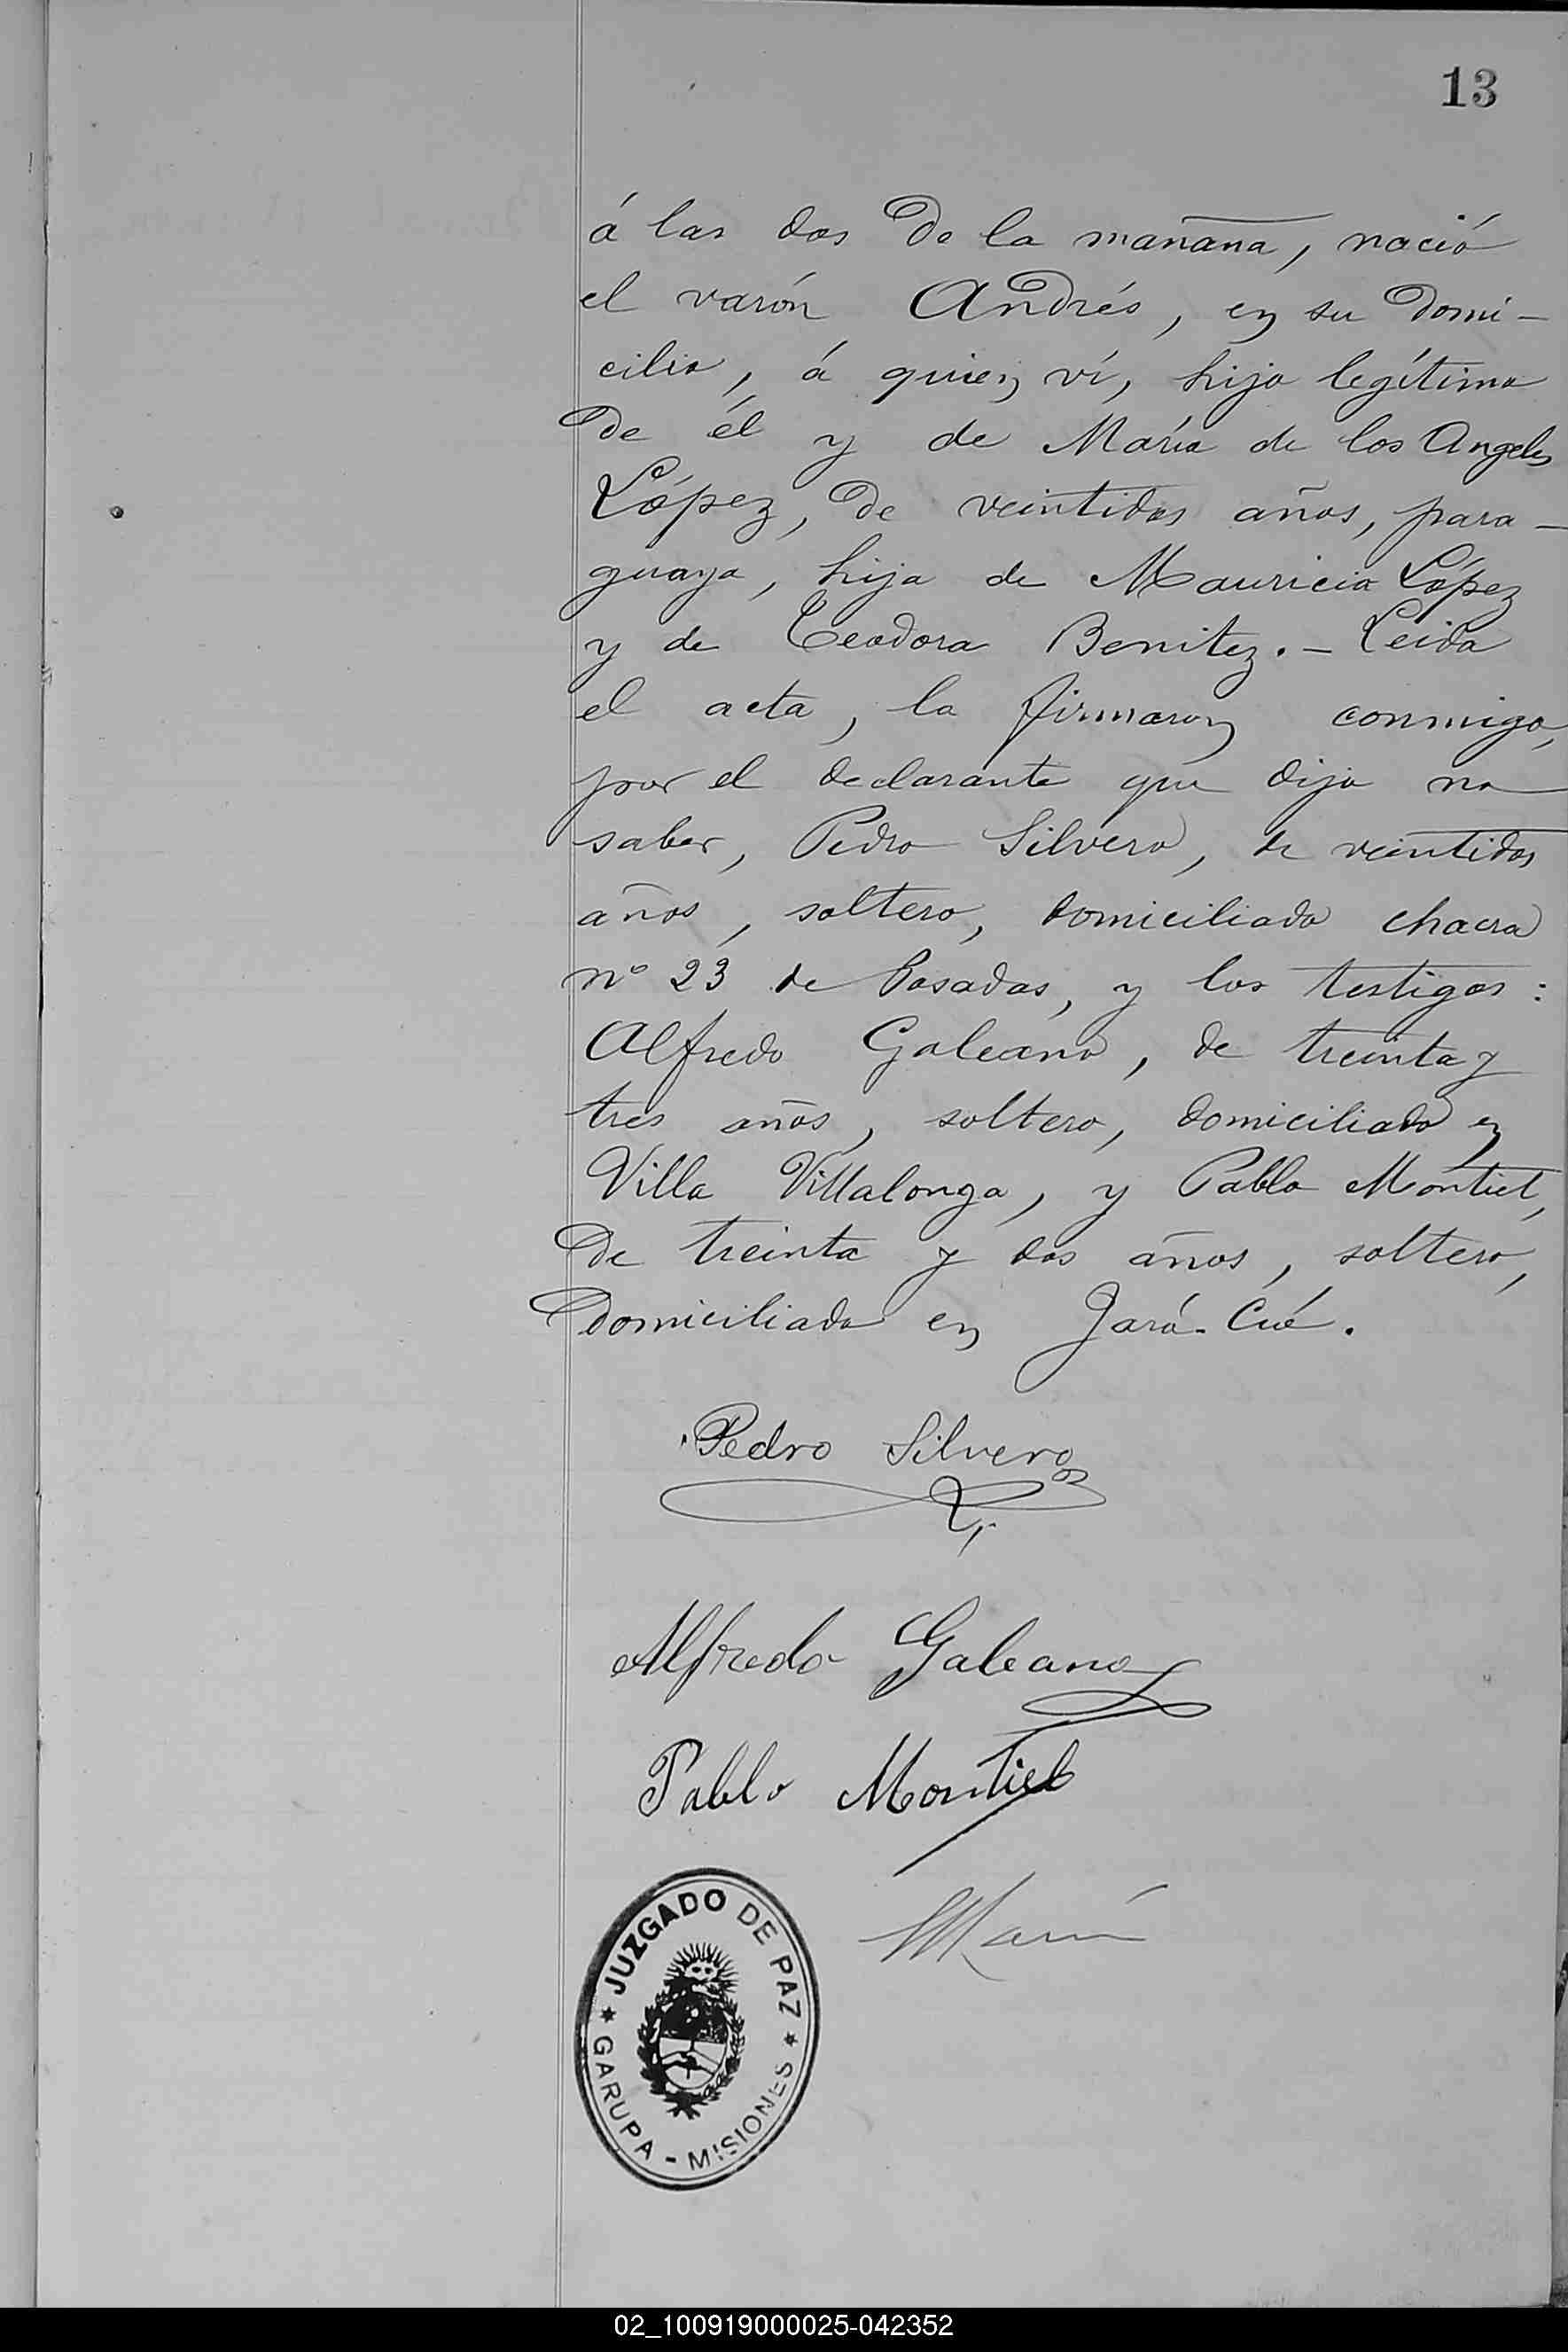 13
á las dos de la mañana, nació
el varón Andrés, en su domi-
cilio, á quien ví, hijo legítimo
de él y de María de los Angeles
López, de veintidos años, para-
guaya, hija de Mauricio López
y de Teodora Benitez. - Leida
el acta, la firmaron conmigo,
por el declarante que dijo no
saber, Pedro Silvero, de veintidos
años, soltero, domiciliado chacra
nº 23 de Posadas, y los testigos:
Alfredo Galeano, de treinta y
tres años, soltero, domiciliado en
Villa Villalonga, y Pablo Montiel,
de treinta y dos años, soltero,
domiciliado en Jará-Cué.
Pedro Silvero
Alfredo Galeano
Pablo Montiel
JUZGADO DE PAZ
GARUPA - MISIONES
02_100919000025-042352